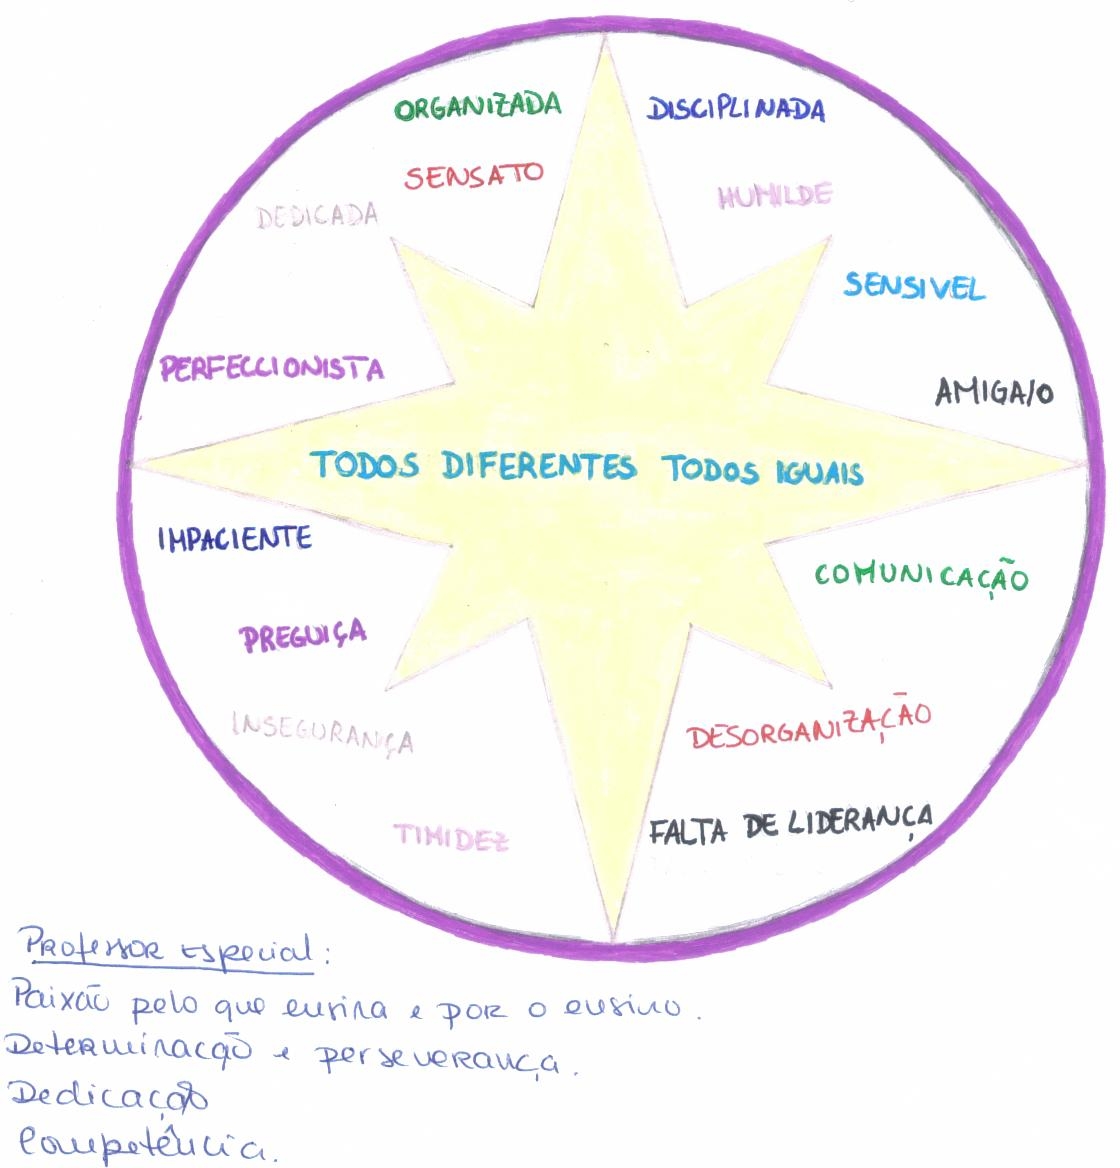 ORGANIZADA DISCIPLINADA
SENSATO HUMILDE
DEDICADA
SENSIVEL
PERFECCIONISTA
AMIGA/O
TODOS DIFERENTES TODOS IGUAIS
IMPACIENTE
COMUNICAÇÃO
PREGUIÇA
INSEGURANÇA
DESORGANIZAÇÃO
TIMIDEZ
FALTA DE LIDERANÇA
Professor Especial:
Paixão pelo que ensina e por o ensino.
Determinação e perseverança.
Dedicação
Competência.